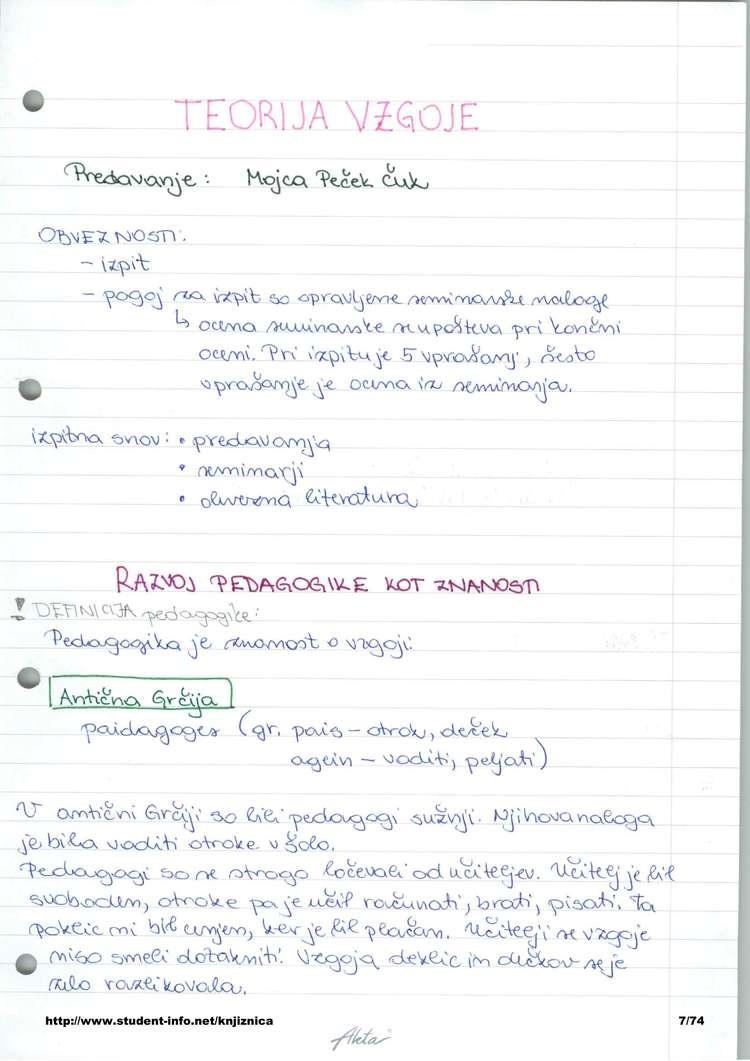 TEORIJA VZGOJE
Predavanje: Mojca Peček Čuk
OBVEZNOSTI:
- izpit
- pogoj za izpit so opravljene seminarske naloge
↳ ocena seminarske se upošteva pri končni
oceni. Pri izpitu je 5 vprašanj, šesto
vprašanje je ocena iz seminarja.
izpitna snov: • predavanja
• seminarji
• obvezna literatura
RAZVOJ PEDAGOGIKE KOT ZNANOSTI
! DEFINICIJA pedagogike:
Pedagogika je znanost o vzgoji!
Antična Grčija
paidagoges (gr. pais - otrok, deček
agein - voditi, peljati)
V antični Grčiji so bili pedagogi sužnji. Njihova naloga
je bila voditi otroke v šolo.
Pedagogi so se strogo ločevali od učiteljev. Učitelj je bil
svoboden, otroke pa je učil računati, brati, pisati. Ta
poklic ni bil cenjen, ker je bil plačan. Učitelji se vzgoje
niso smeli dotakniti! Vzgoja deklic in dečkov se je
zelo razlikovala.
http://www.student-info.net/knjiznica
7/74
Akta